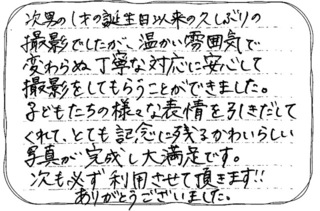 次男の1才の誕生日以来の久しぶりの
撮影でしたが、温かい雰囲気で
変わらぬ丁寧な対応に安心して
撮影をしてもらうことができました。
子どもたちの様々な表情を引きだして
くれて、とても記念に残るかわいらしい
写真が完成し大満足です。
次も必ず利用させて頂きます!!
ありがとうございました。